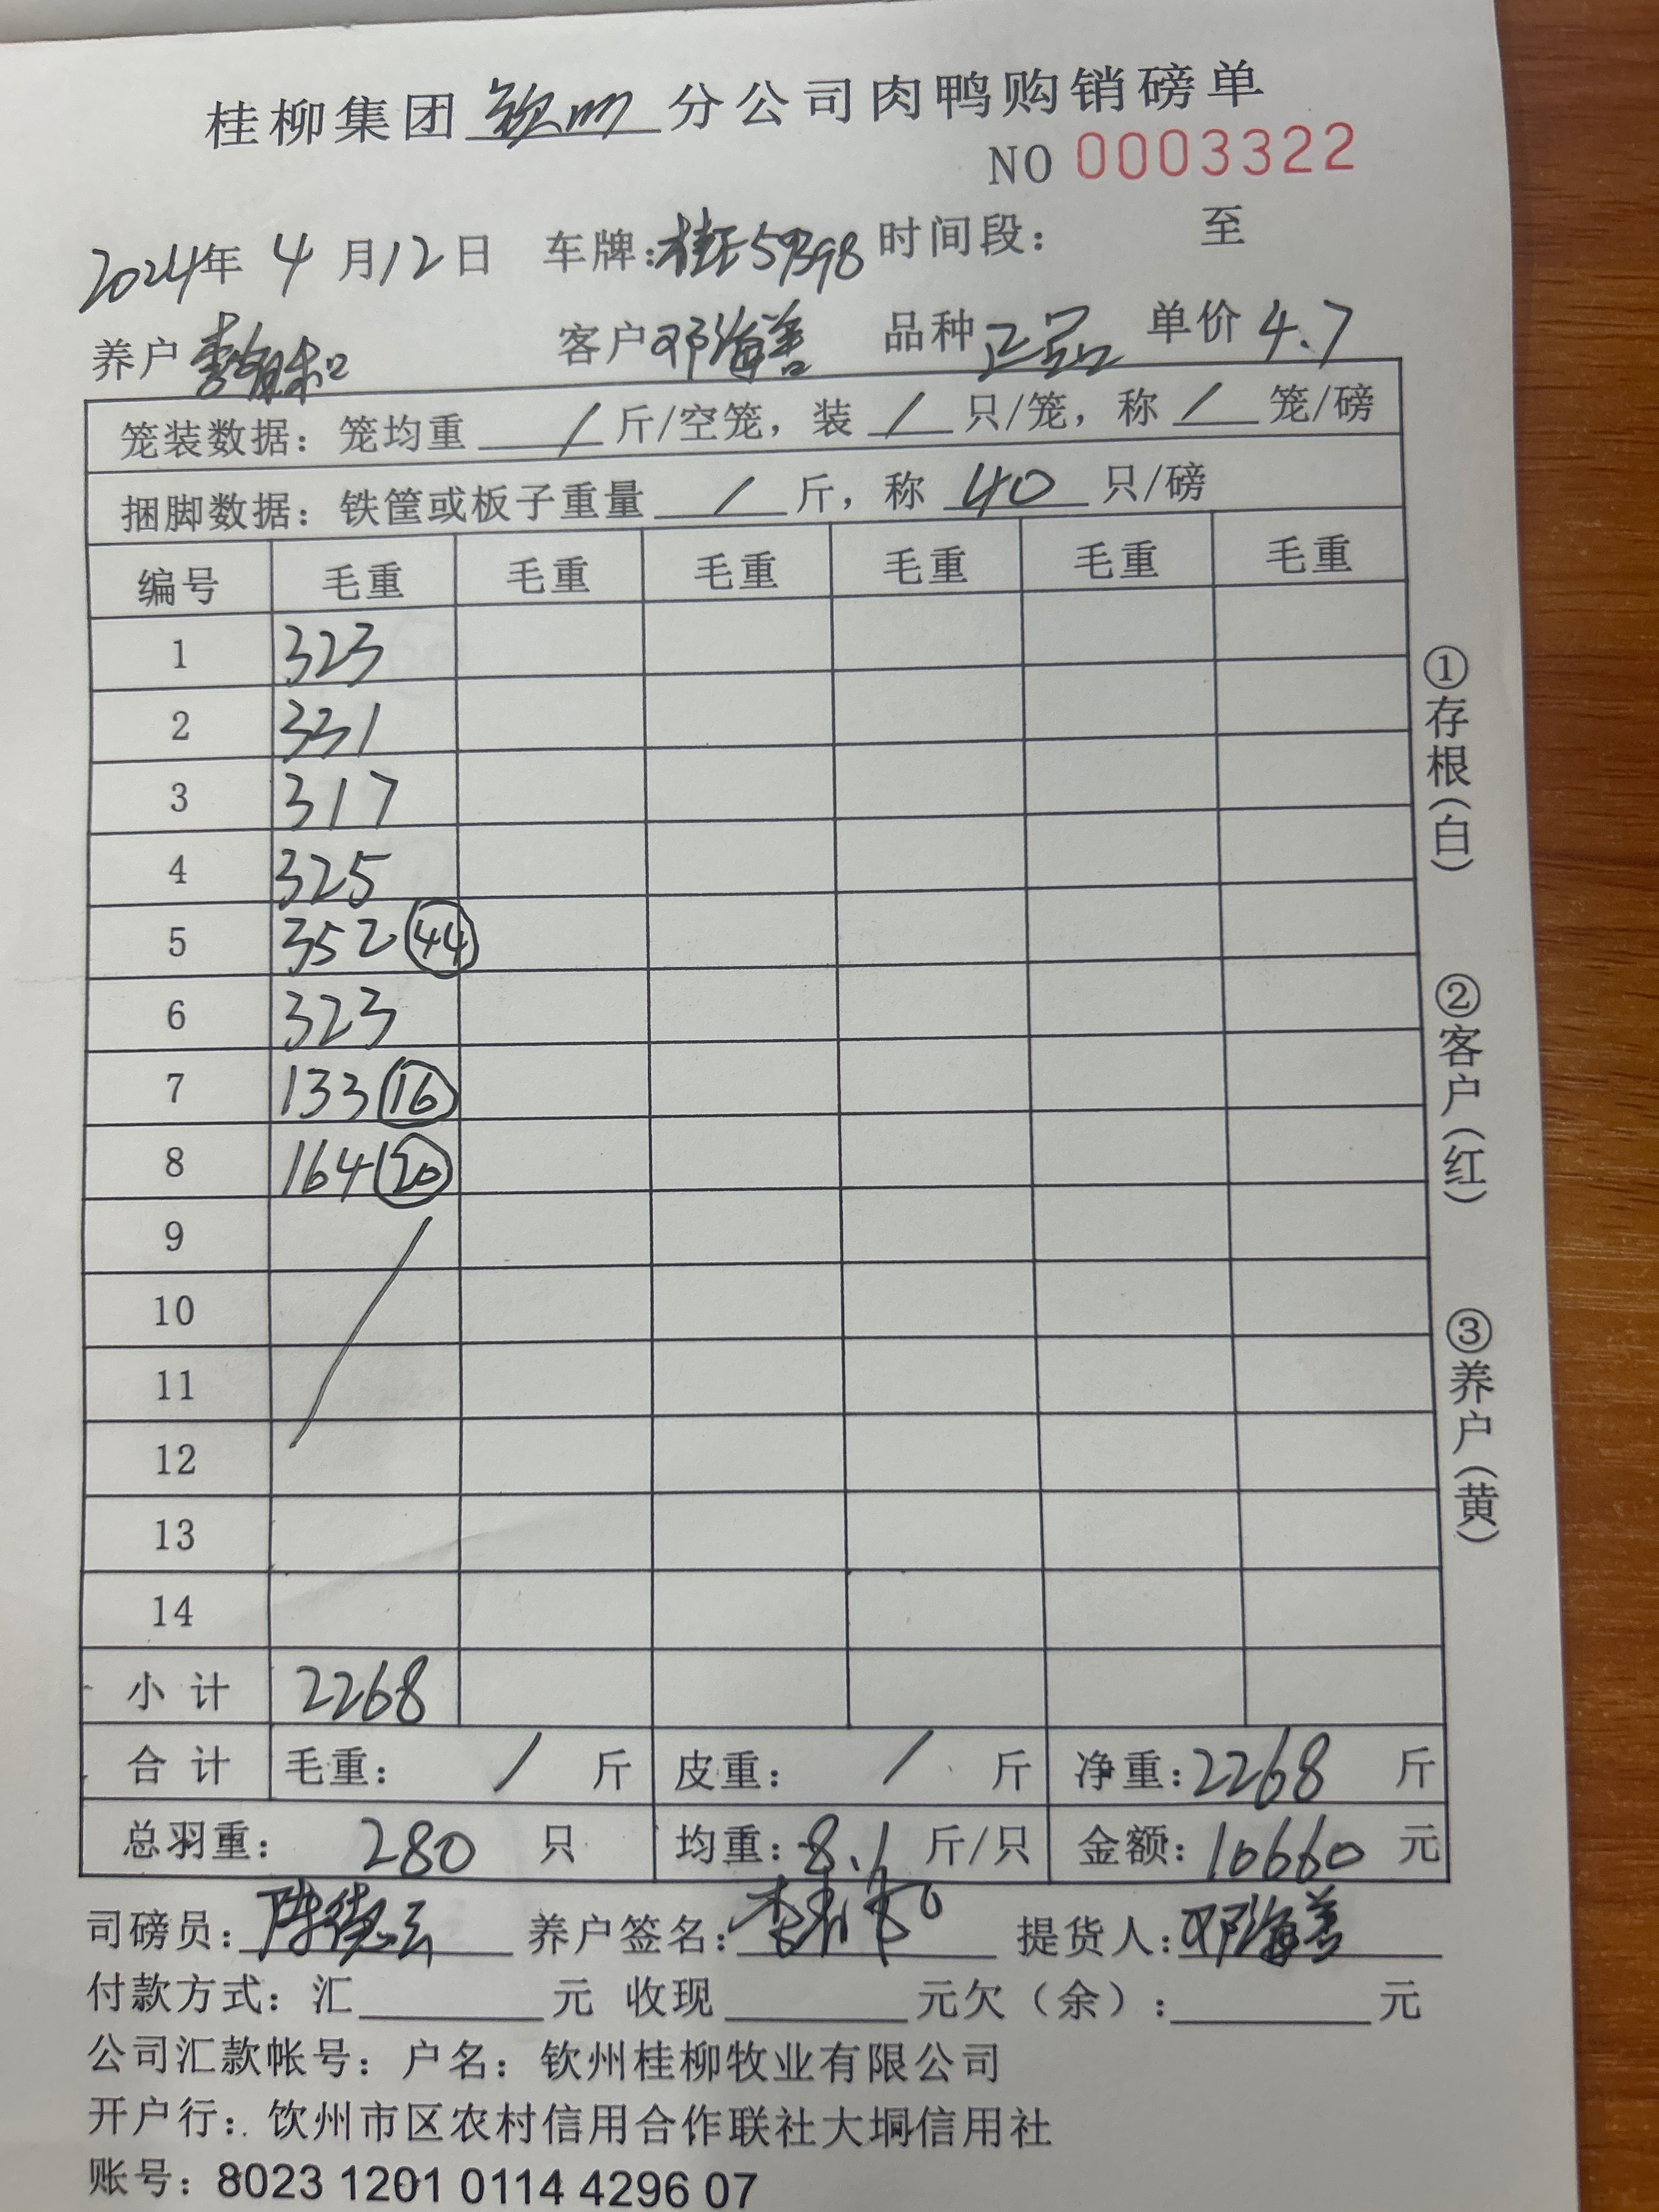 桂柳集团 钦州 分公司肉鸭购销磅单
NO 0003322
2024年 4 月 12 日 车牌: 时间段: 至
养户 客户 邓海善 品种 正品 单价 4.7
笼装数据: 笼均重 / 斤/空笼, 装 / 只/笼, 称 / 笼/磅
捆脚数据: 铁筐或板子重量 / 斤, 称 40 只/磅
编号 毛重 毛重 毛重 毛重 毛重 毛重
1 323
2 331
3 317
4 325
5 352 44
6 323
7 133 16
8 164 20
9
10
11
12
13
14
小 计 2268
合 计 毛重: / 斤 皮重: / 斤 净重: 2268 斤
总羽重: 280 只 均重: 8.1 斤/只 金额: 10660 元
司磅员: 养户签名: 提货人: 邓海善
付款方式: 汇 元 收现 元欠(余): 元
公司汇款帐号: 户名: 钦州桂柳牧业有限公司
开户行: 钦州市区农村信用合作联社大垌信用社
账号: 8023 1201 0114 4296 07
①存根(白)
②客户(红)
③养户(黄)